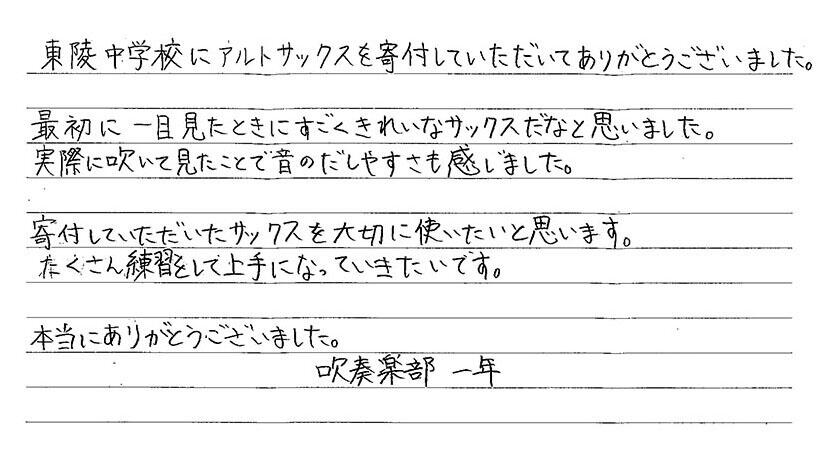 東陵中学校にアルトサックスを寄付していただいてありがとうございました。
最初に一目見たときにすごくきれいなサックスだなと思いました。
実際に吹いて見たことで音のだしやすさも感じました。
寄付していただいたサックスを大切に使いたいと思います。
たくさん練習をして上手になっていきたいです。
本当にありがとうございました。
吹奏楽部 一年